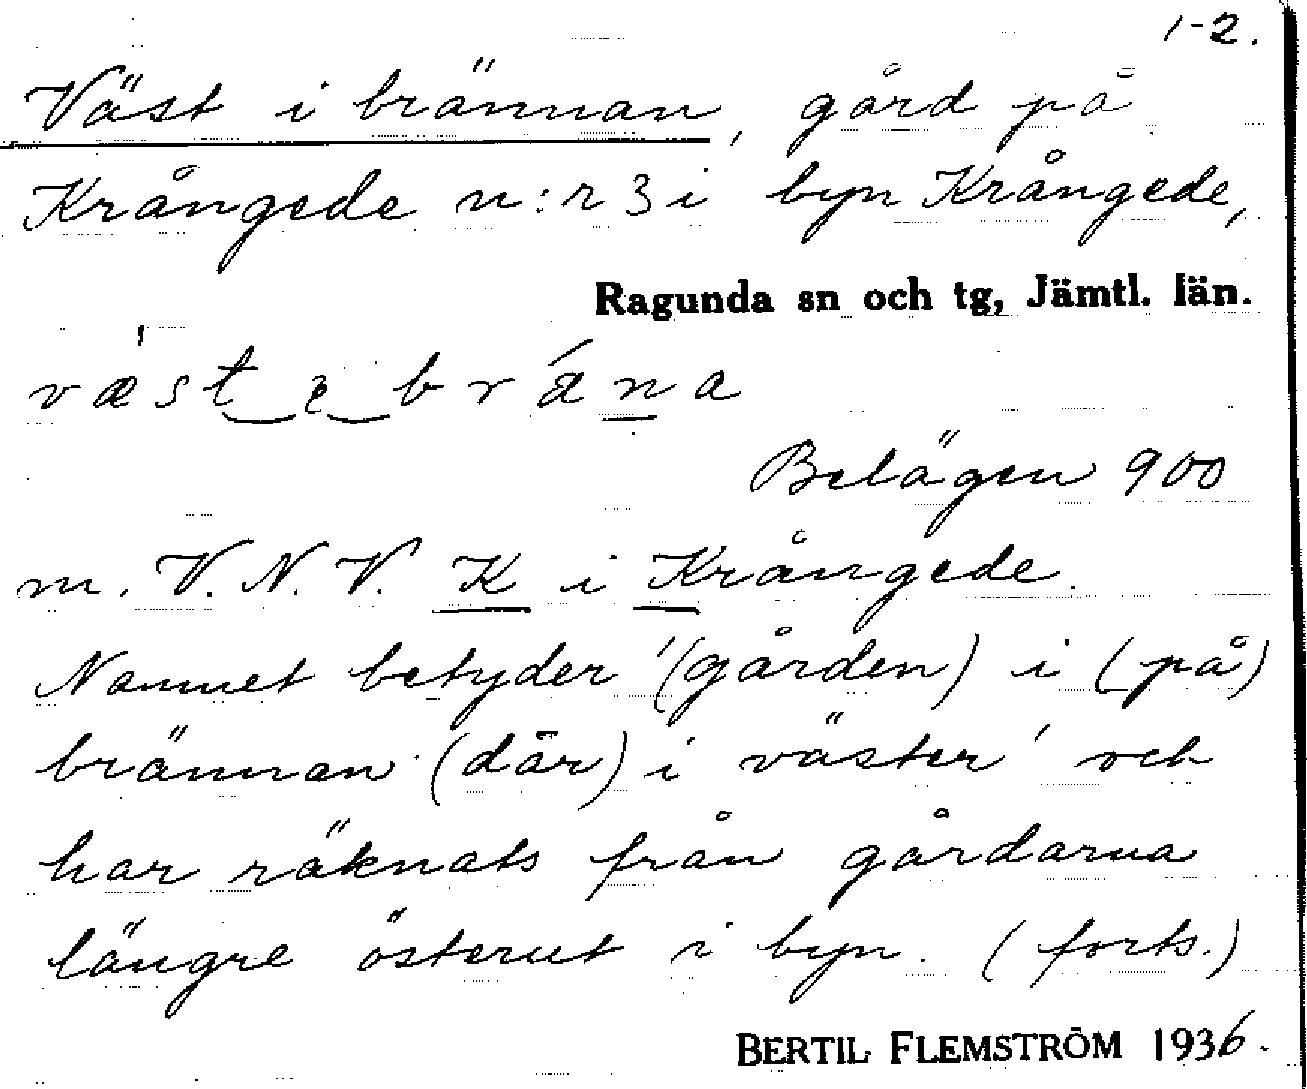 1-2.
Väst i brännan, gård på
Krångede n:r 3 i byn Krångede,
Ragunda sn och tg, Jämtl. län.
væst‿e‿bræ´na
Belägen 900
m. V.N.V. K i Krångede.
Namnet betyder '(gården) i (på)
brännan (där) i väster' och
har räknats från gårdarna
längre österut i byn. (forts.)
BERTIL FLEMSTRÖM 1936.